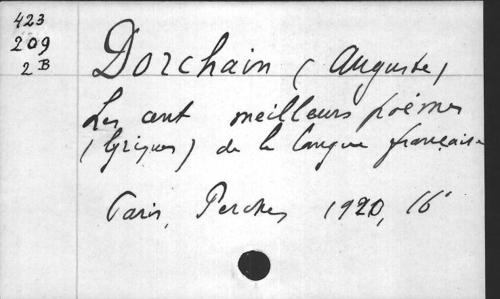 423
209
2 B
Dorchain (Auguste)
Les cent meilleurs poèmes
(lyriques) de la langue française
Paris, Perche, 1920, 16°